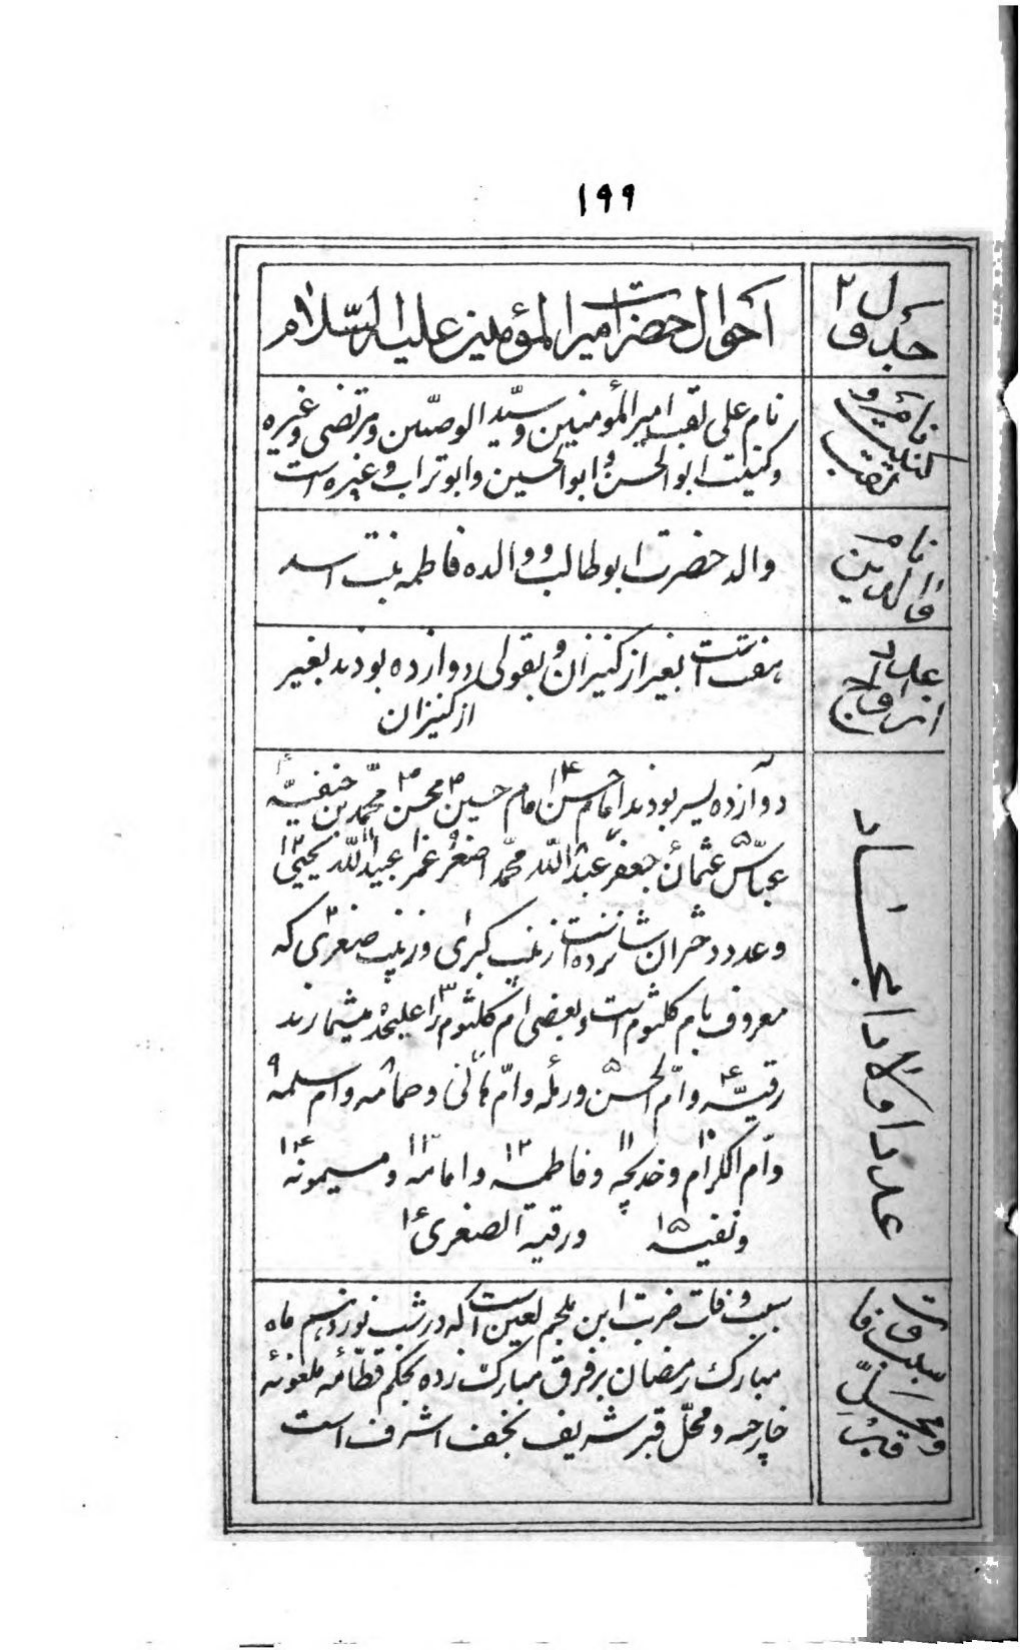 ۱۹۹
جدول ۲
احوال حضرات امیرالمؤمنین علیه السلام
نام و کنیت و لقب
نام علی لقب امیرالمؤمنین و سیّد الوصیّین و مرتضی و غیره
و کنیت ابوالحسن و ابوالحسین و ابوتراب و غیره است
نام والدین
والد حضرت ابوطالب و والده فاطمه بنت اسد
عدد ازواج
هفت است بغیر از کنیزان و بقولی دوازده بودند بغیر
از کنیزان
عدد اولاد امجاد
دوازده پسر بودند امام حسن امام حسین محسن محمّد بن حنفیّه
عبّاس عثمان جعفر عبدالله محمّد اصغر عمر عبیدالله یحیی
و عدد دختران شانزده است زینب کبرای و زینب صغرای که
معروف بام کلثوم است و بعضی ام کلثوم را علیحده میشمارند
رقیّه و امّ الحسن و رمله و امّ هانی و حمامه و ام سلمه
و امّ الکرام و خدیجه و فاطمه و امامه و میمونه
و نفیسه و رقیة الصغری
سبب وفات و محلّ قبر
سبب وفات ضربت ابن ملجم لعین است که در شب نوزدهم ماه
مبارک رمضان بر فرق مبارکش زده بحکم قطّامه ملعونه
خارجیه و محلّ قبر شریف نجف اشرف است